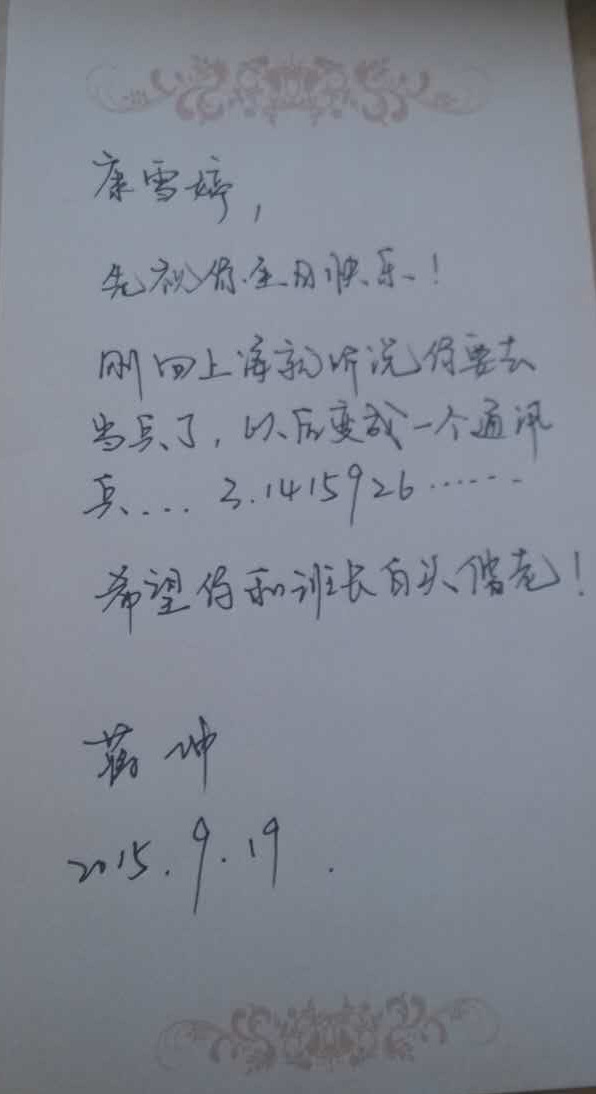 康雪婷,
先祝你生日快乐!
刚回上海就听说你要去
当兵了,以后变成一个通讯
兵.... 3.1415926······
希望你和班长白头偕老!
蒋坤
2015.9.19.